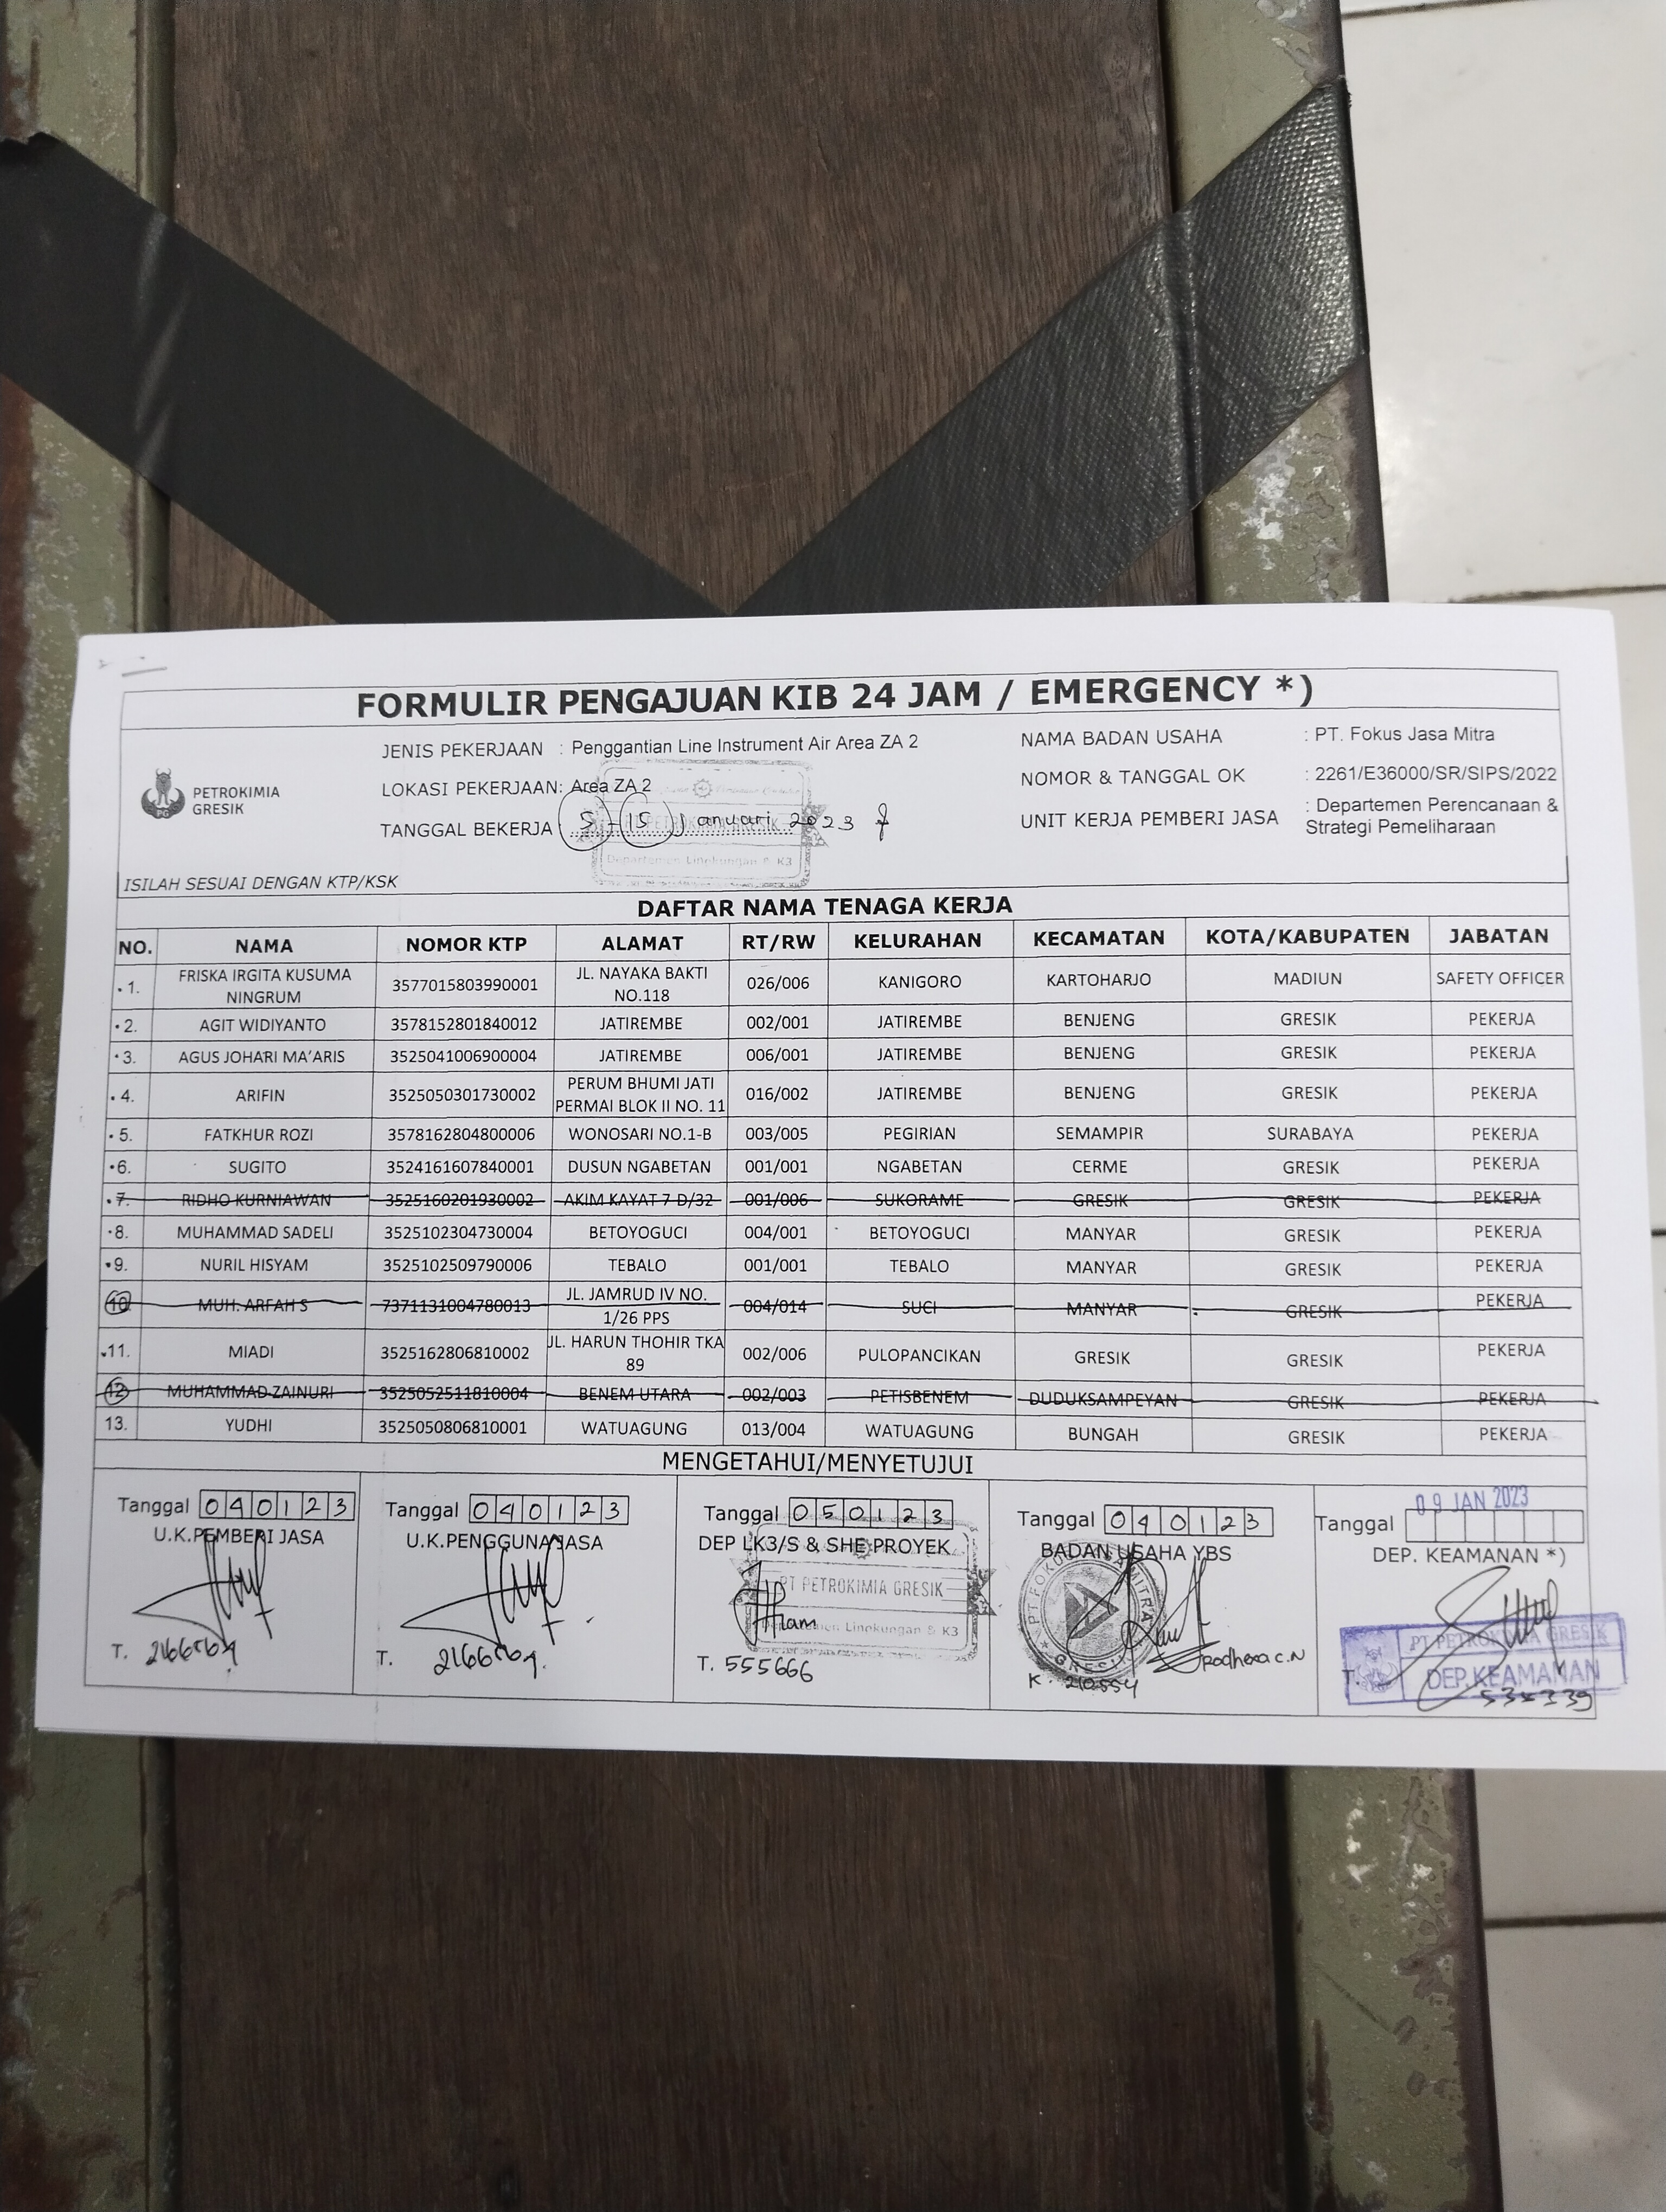 FORMULIR PENGAJUAN KIB 24 JAM / EMERGENCY *)
PETROKIMIA
GRESIK
JENIS PEKERJAAN : Penggantian Line Instrument Air Area ZA 2
LOKASI PEKERJAAN: Area ZA 2
TANGGAL BEKERJA 5 - 15 Januari 2023
Departemen Lingkungan & K3
NAMA BADAN USAHA : PT. Fokus Jasa Mitra
NOMOR & TANGGAL OK : 2261/E36000/SR/SIPS/2022
UNIT KERJA PEMBERI JASA : Departemen Perencanaan &
Strategi Pemeliharaan
ISILAH SESUAI DENGAN KTP/KSK
DAFTAR NAMA TENAGA KERJA
NO. NAMA NOMOR KTP ALAMAT RT/RW KELURAHAN KECAMATAN KOTA/KABUPATEN JABATAN
1. FRISKA IRGITA KUSUMA NINGRUM 3577015803990001 JL. NAYAKA BAKTI NO.118 026/006 KANIGORO KARTOHARJO MADIUN SAFETY OFFICER
2. AGIT WIDIYANTO 3578152801840012 JATIREMBE 002/001 JATIREMBE BENJENG GRESIK PEKERJA
3. AGUS JOHARI MA'ARIS 3525041006900004 JATIREMBE 006/001 JATIREMBE BENJENG GRESIK PEKERJA
4. ARIFIN 3525050301730002 PERUM BHUMI JATI PERMAI BLOK II NO. 11 016/002 JATIREMBE BENJENG GRESIK PEKERJA
5. FATKHUR ROZI 3578162804800006 WONOSARI NO.1-B 003/005 PEGIRIAN SEMAMPIR SURABAYA PEKERJA
6. SUGITO 3524161607840001 DUSUN NGABETAN 001/001 NGABETAN CERME GRESIK PEKERJA
7. RIDHO KURNIAWAN 3525160201930002 AKIM KAYAT 7 D/32 001/006 SUKORAME GRESIK GRESIK PEKERJA
8. MUHAMMAD SADELI 3525102304730004 BETOYOGUCI 004/001 BETOYOGUCI MANYAR GRESIK PEKERJA
9. NURIL HISYAM 3525102509790006 TEBALO 001/001 TEBALO MANYAR GRESIK PEKERJA
10 MUH. ARFAH S 7371131004780013 JL. JAMRUD IV NO. 1/26 PPS 004/014 SUCI MANYAR GRESIK PEKERJA
11. MIADI 3525162806810002 JL. HARUN THOHIR TKA 89 002/006 PULOPANCIKAN GRESIK GRESIK PEKERJA
12 MUHAMMAD ZAINURI 3525052511810004 BENEM UTARA 002/003 PETISBENEM DUDUKSAMPEYAN GRESIK PEKERJA
13. YUDHI 3525050806810001 WATUAGUNG 013/004 WATUAGUNG BUNGAH GRESIK PEKERJA
MENGETAHUI/MENYETUJUI
Tanggal 040123
U.K.PEMBERI JASA
T.
Tanggal 040123
U.K.PENGGUNA JASA
T.
Tanggal 050123
DEP LK3/S & SHE PROYEK
PT PETROKIMIA GRESIK
Departemen Lingkungan & K3
T. 555666
Tanggal 040123
BADAN USAHA YBS
GRESIK
K.
09 JAN 2023
Tanggal
DEP. KEAMANAN *)
PT PETROKIMIA GRESIK
DEP. KEAMANAN
T.